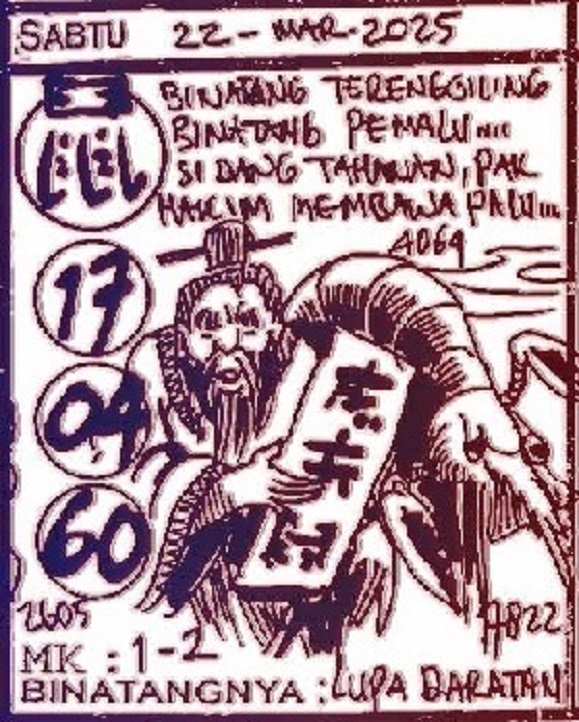 SABTU 22-MAR-2025
BINATANG TERENGGILING
BINATANG PEMALU....
SI DANG TAHANAN, PAK
HAKIM MEMBAWA PALU...
4064
17
04
60
2605
A822
MK : 1-2
BINATANGNYA : LUPA DARATAN